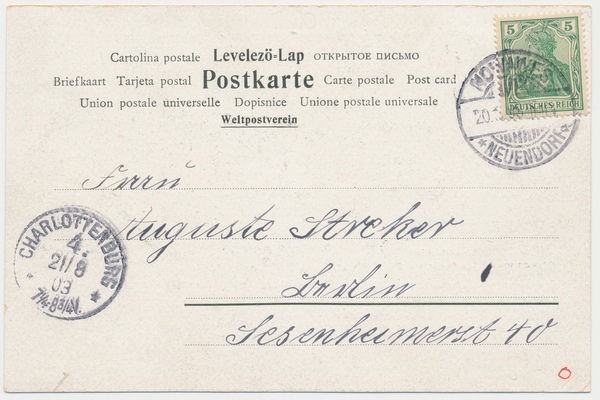 Cartolina postale Levelezö-Lap ОТКРЫТОЕ ПИСЬМО
Briefkaart Tarjeta postal Postkarte Carte postale Post card
Union postale universelle Dopisnice Unione postale universale
Weltpostverein
5 5
DEUTSCHES REICH
20.
* NEUENDORF
Frau
Auguste Streker
Berlin
Sesenheimerst 40
CHARLOTTENBURG
4.
21/8
03
7¼-8¾N.